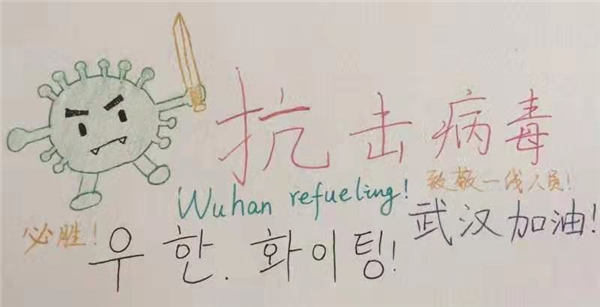 抗击病毒
致敬一线人员!
Wuhan refueling!
武汉加油!
必胜!
우한. 화이팅!